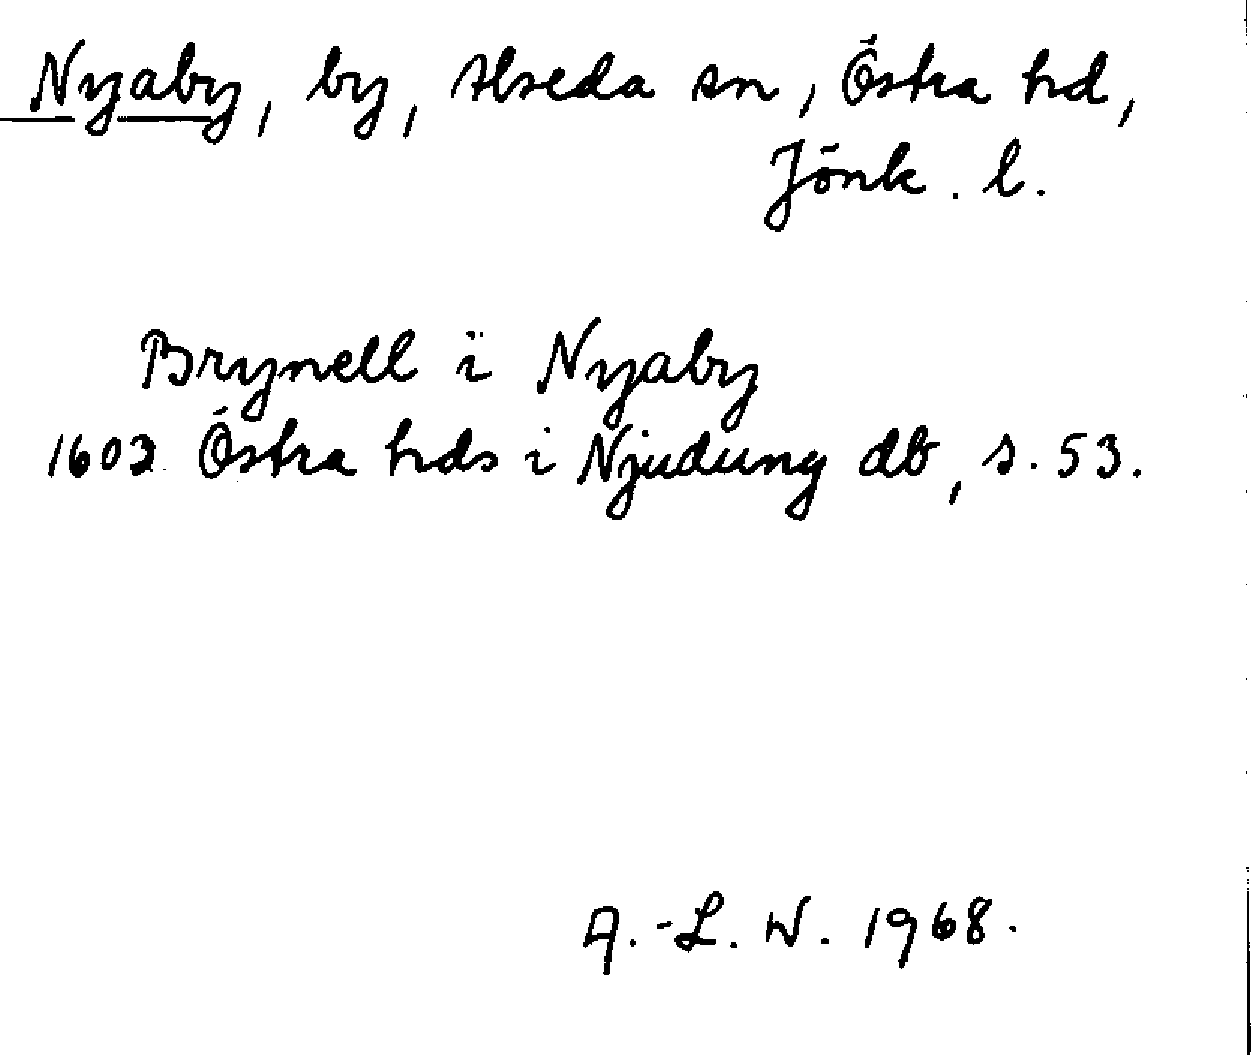 Nyaby, by, Alseda sn, Östra hd,
Jönk. l.
Brynell ï Nyaby
1602 Östra hds i Njudung db, s. 53.
A.-L. W. 1968.